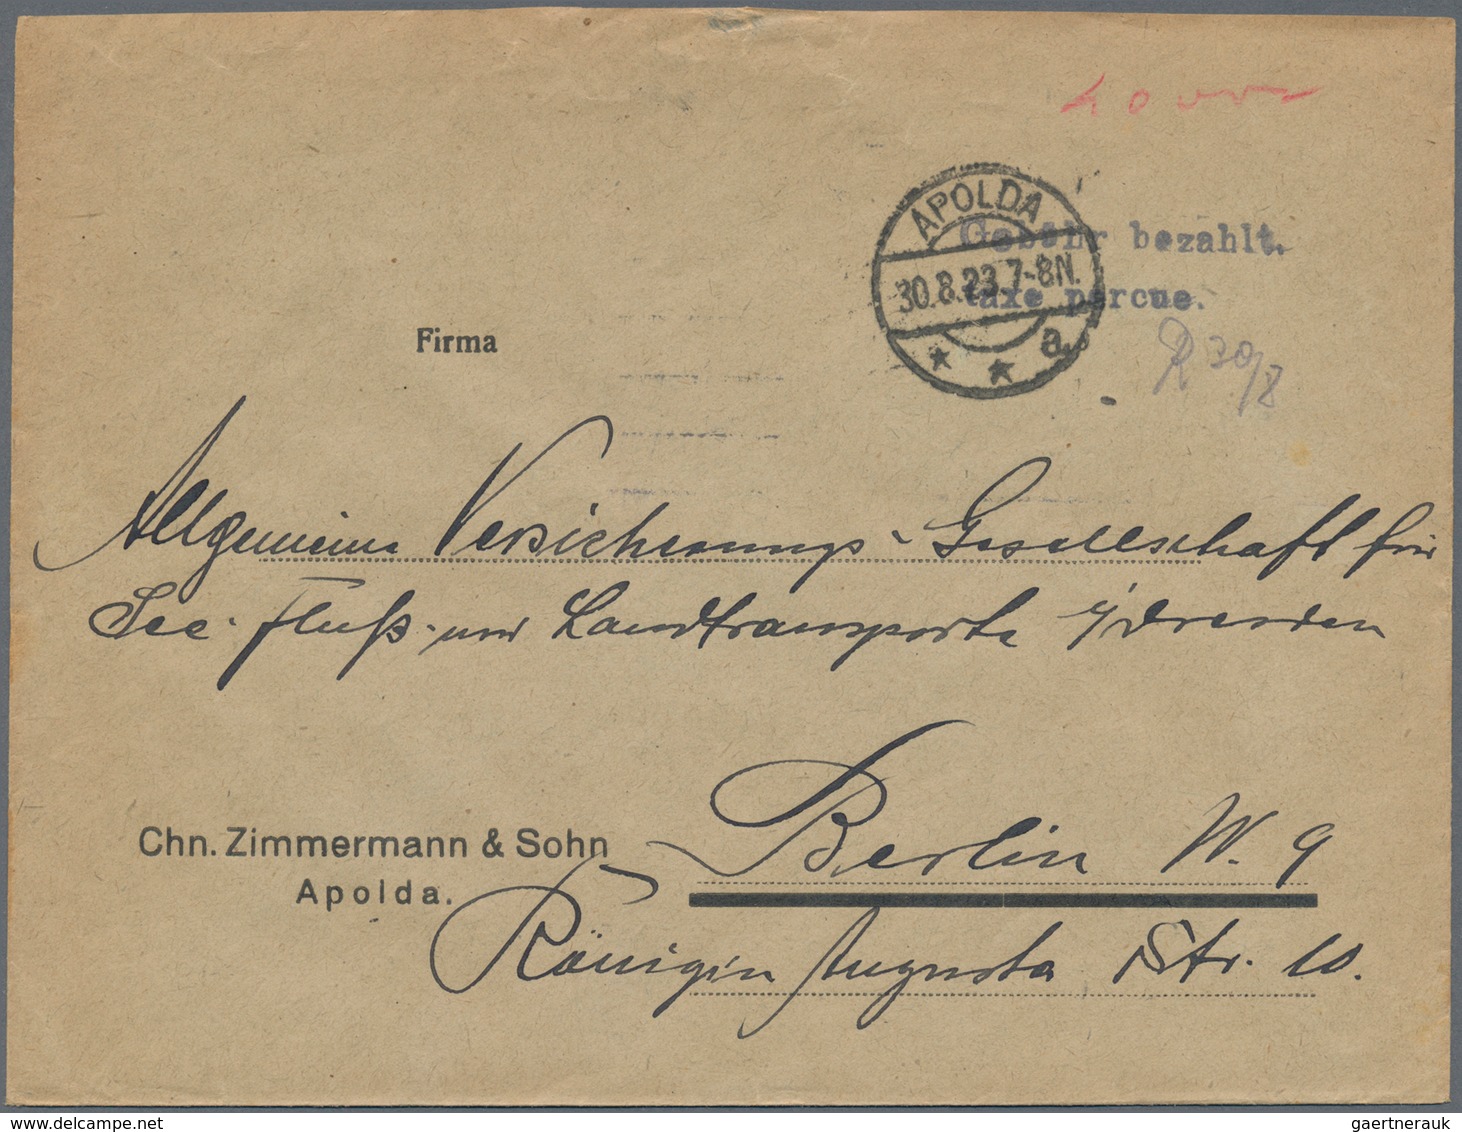 40000
APOLDA
Gebühr bezahlt.
30.8.23.7-8N.
taxe percue.
a.
R 30/8
Firma
Allgemeine Versicherungs-Gesellschaft für
See-Fluß- und Landtransporte i/Dresden
Berlin W. 9
Chn. Zimmermann & Sohn
Apolda.
Königin Augusta Str. 10.
gaertnerauk